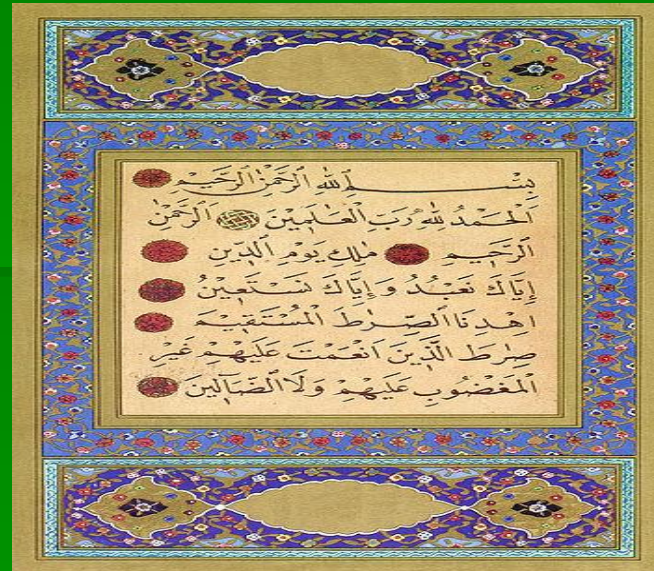 بِسْمِ ٱللَّهِ ٱلرَّحْمٰنِ ٱلرَّحِيمِ
ٱلْحَمْدُ لِلّٰهِ رَبِّ ٱلْعَالَمِينَ ٱلرَّحْمٰنِ
ٱلرَّحِيمِ مٰلِكِ يَوْمِ ٱلدِّينِ
إِيَّاكَ نَعْبُدُ وَإِيَّاكَ نَسْتَعِينُ
اِهْدِنَا ٱلصِّرٰطَ ٱلْمُسْتَقِيمَ
صِرٰطَ ٱلَّذِينَ اَنْعَمْتَ عَلَيْهِمْ غَيْرِ
ٱلْمَغْضُوبِ عَلَيْهِمْ وَلَا ٱلضَّآلِّينَ